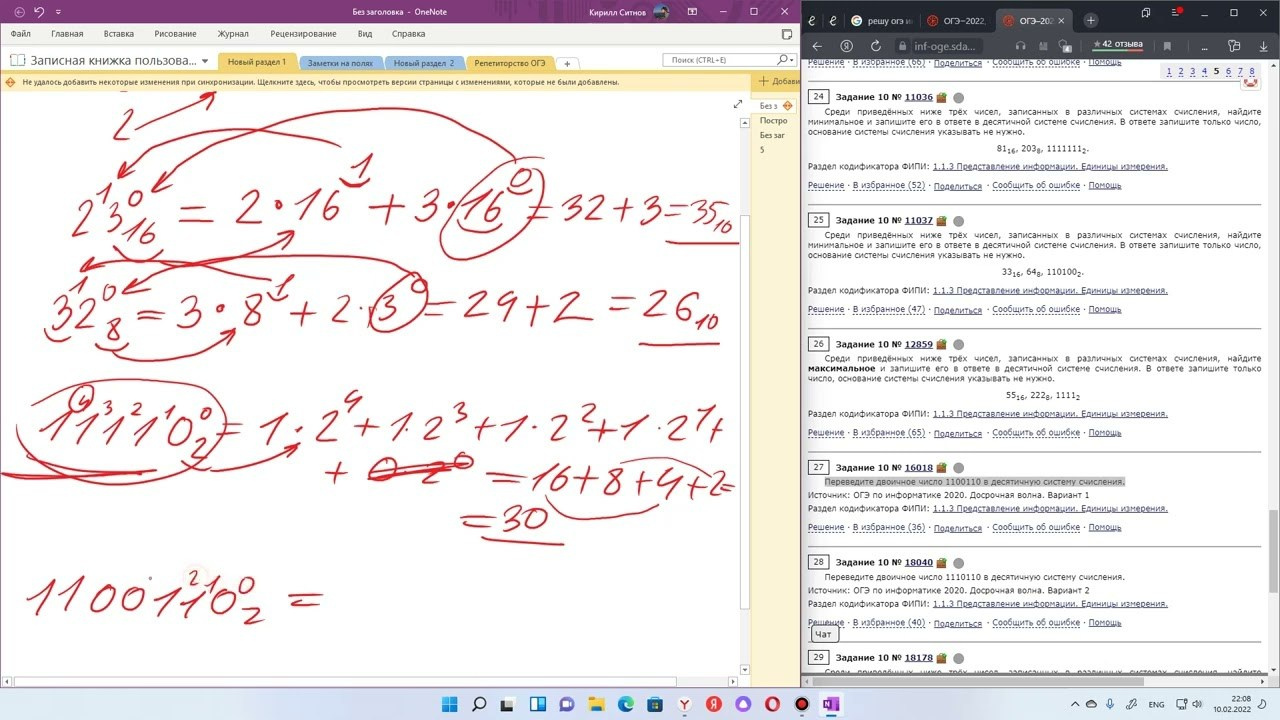 Без заголовка - OneNote
Кирилл Ситнов
Файл Главная Вставка Рисование Журнал Рецензирование Вид Справка
Записная книжка пользова... Новый раздел 1 Заметки на полях Новый раздел 2 Репетиторство ОГЭ + Поиск (CTRL+E)
Не удалось добавить некоторые изменения при синхронизации. Щелкните здесь, чтобы просмотреть версии страницы с изменениями, которые не были добавлены.
Добави
Без з
Постро
Без заг
5
2
2¹3⁰₁₆ = 2·16¹ + 3·16⁰ = 32+3=35₁₀
3¹2⁰₈ = 3·8¹ + 2·3⁰ = 29+2 = 26₁₀
1⁴1³1²1¹0⁰₂ = 1·2⁴+1·2³+1·2²+1·2¹+
+ 0·2⁰ = 16+8+4+2=
= 30
11001²1¹0⁰₂ =
решу огэ и
ОГЭ−2022,
ОГЭ-202
inf-oge.sda...
42 отзыва
В избранное (66) Поделиться · Сообщить об ошибке · Помощь
1 2 3 4 5 6 7 8
24 Задание 10 № 11036
Среди приведённых ниже трёх чисел, записанных в различных системах счисления, найдите
минимальное и запишите его в ответе в десятичной системе счисления. В ответе запишите только число,
основание системы счисления указывать не нужно.
81₁₆, 203₈, 1111111₂.
Раздел кодификатора ФИПИ: 1.1.3 Представление информации. Единицы измерения.
Решение · В избранное (52) · Поделиться · Сообщить об ошибке · Помощь
25 Задание 10 № 11037
Среди приведённых ниже трёх чисел, записанных в различных системах счисления, найдите
минимальное и запишите его в ответе в десятичной системе счисления. В ответе запишите только число,
основание системы счисления указывать не нужно.
33₁₆, 64₈, 110100₂.
Раздел кодификатора ФИПИ: 1.1.3 Представление информации. Единицы измерения.
Решение · В избранное (47) · Поделиться · Сообщить об ошибке · Помощь
26 Задание 10 № 12859
Среди приведённых ниже трёх чисел, записанных в различных системах счисления, найдите
максимальное и запишите его в ответе в десятичной системе счисления. В ответе запишите только
число, основание системы счисления указывать не нужно.
55₁₆, 222₈, 1111₂
Раздел кодификатора ФИПИ: 1.1.3 Представление информации. Единицы измерения.
Решение · В избранное (65) · Поделиться · Сообщить об ошибке · Помощь
27 Задание 10 № 16018
Переведите двоичное число 1100110 в десятичную систему счисления.
Источник: ОГЭ по информатике 2020. Досрочная волна. Вариант 1
Раздел кодификатора ФИПИ: 1.1.3 Представление информации. Единицы измерения.
Решение · В избранное (36) · Поделиться · Сообщить об ошибке · Помощь
28 Задание 10 № 18040
Переведите двоичное число 1110110 в десятичную систему счисления.
Источник: ОГЭ по информатике 2020. Досрочная волна. Вариант 2
Раздел кодификатора ФИПИ: 1.1.3 Представление информации. Единицы измерения.
Решение · В избранное (40) · Поделиться · Сообщить об ошибке · Помощь
Чат
29 Задание 10 № 18178
ENG 22:08
10.02.2022